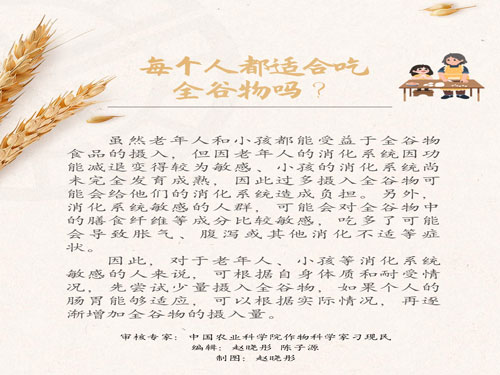 每个人都适合吃
全谷物吗？
虽然老年人和小孩都能受益于全谷物
食品的摄入，但因老年人的消化系统因功
能减退变得较为敏感、小孩的消化系统尚
未完全发育成熟，因此过多摄入全谷物可
能会给他们的消化系统造成负担。另外，
消化系统敏感的人群，可能会对全谷物中
的膳食纤维等成分比较敏感，吃多了可能
会导致胀气、腹泻或其他消化不适等症
状。
因此，对于老年人、小孩等消化系统
敏感的人来说，可根据自身体质和耐受情
况，先尝试少量摄入全谷物，如果个人的
肠胃能够适应，可以根据实际情况，再逐
渐增加全谷物的摄入量。
审核专家：中国农业科学院作物科学家刁现民
编辑：赵晓彤 陈子源
制图：赵晓彤